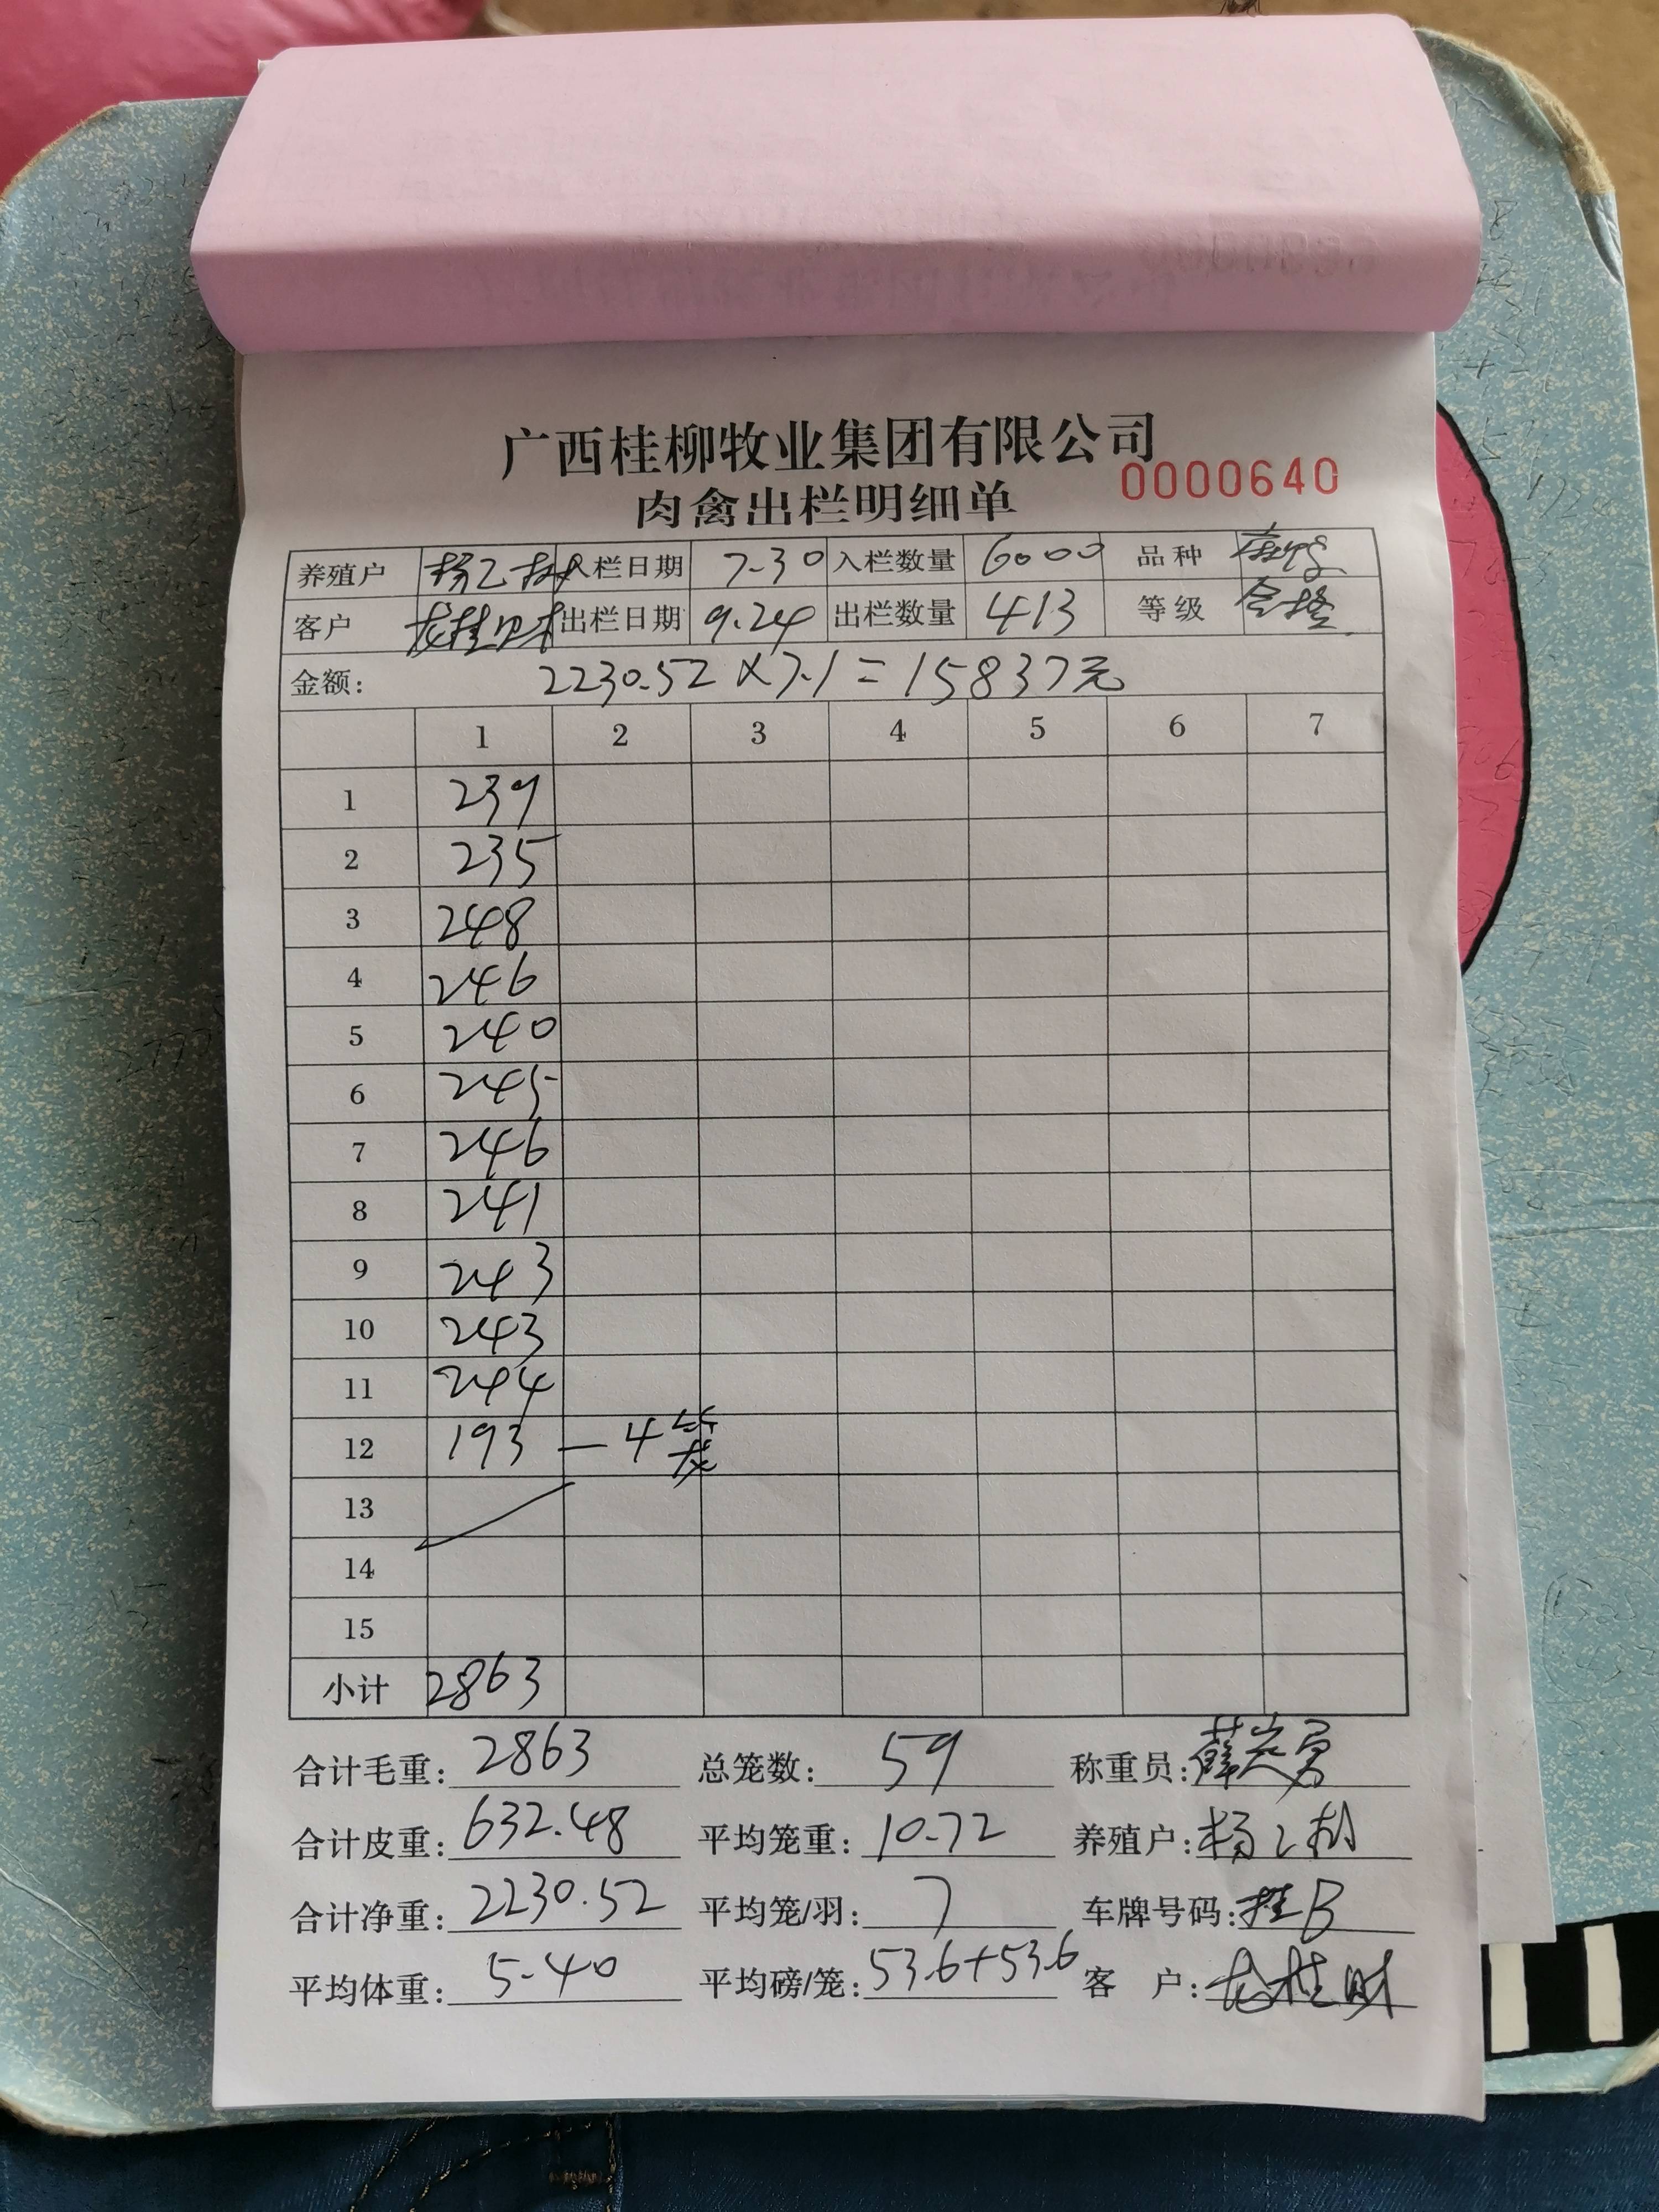 广西桂柳牧业集团有限公司
0000640
肉禽出栏明细单
养殖户 杨乙 入栏日期 7-30 入栏数量 6000 品种
客户 龙桂财 出栏日期 9.24 出栏数量 413 等级 合格
金额: 2230.52×7.1=15837元
1 2 3 4 5 6 7
1 239
2 235
3 248
4 246
5 240
6 245
7 246
8 241
9 243
10 243
11 244
12 193 — 4笼
13
14
15
小计 2863
合计毛重: 2863 总笼数: 59 称重员:
合计皮重: 632.48 平均笼重: 10.72 养殖户: 杨乙
合计净重: 2230.52 平均笼/羽: 7 车牌号码: 桂B
平均体重: 5.40 平均磅/笼: 53.6+53.6 客 户: 龙桂财